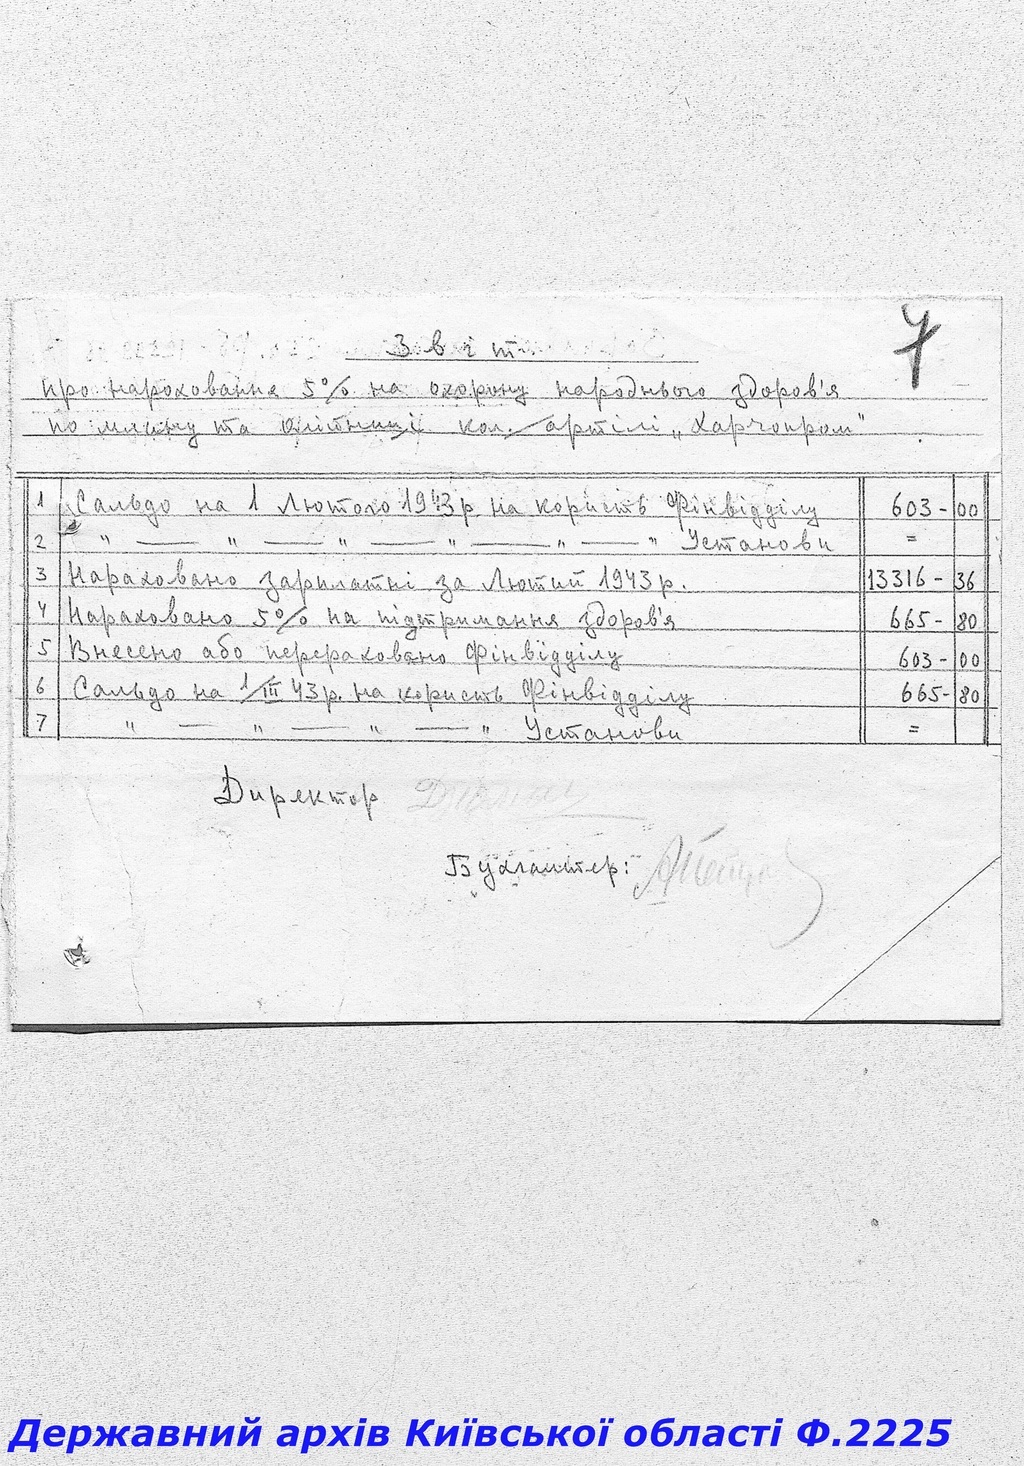 7
Звіт
про нараховання 5% на охорону народнього здоров'я
по млину та олійниці кол. артілі „Харчопром"
1 Сальдо на 1 Лютого 1943 р. на користь Фінвідділу 603-00
2 " — " — " — " — " — " Установи =
3 Нараховано зарплатні за Лютий 1943 р. 13316-36
4 Нараховано 5% на підтримання здоров'я 665-80
5 Внесено або перераховано Фінвідділу 603-00
6 Сальдо на 1/III 43 р. на користь Фінвідділу 665-80
7 " — " — " — " Установи =
Директор
Бухгалтер:
Державний архів Київської області Ф.2225